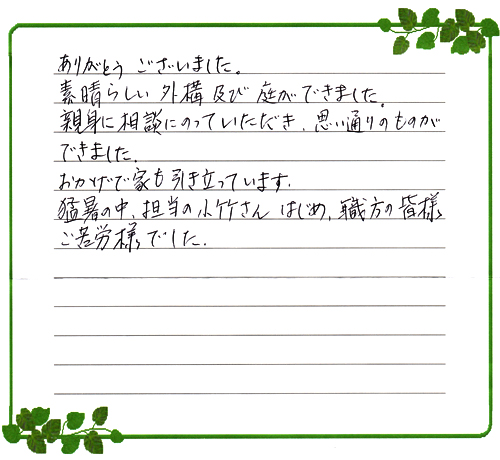 ありがとう ございました。
素晴らしい 外構 及び 庭ができました。
親身に相談にのっていただき、思い通りのものが
できました。
おかげで家も引き立っています。
猛暑の中、担当の小竹さん はじめ、職方の皆様
ご苦労様でした。